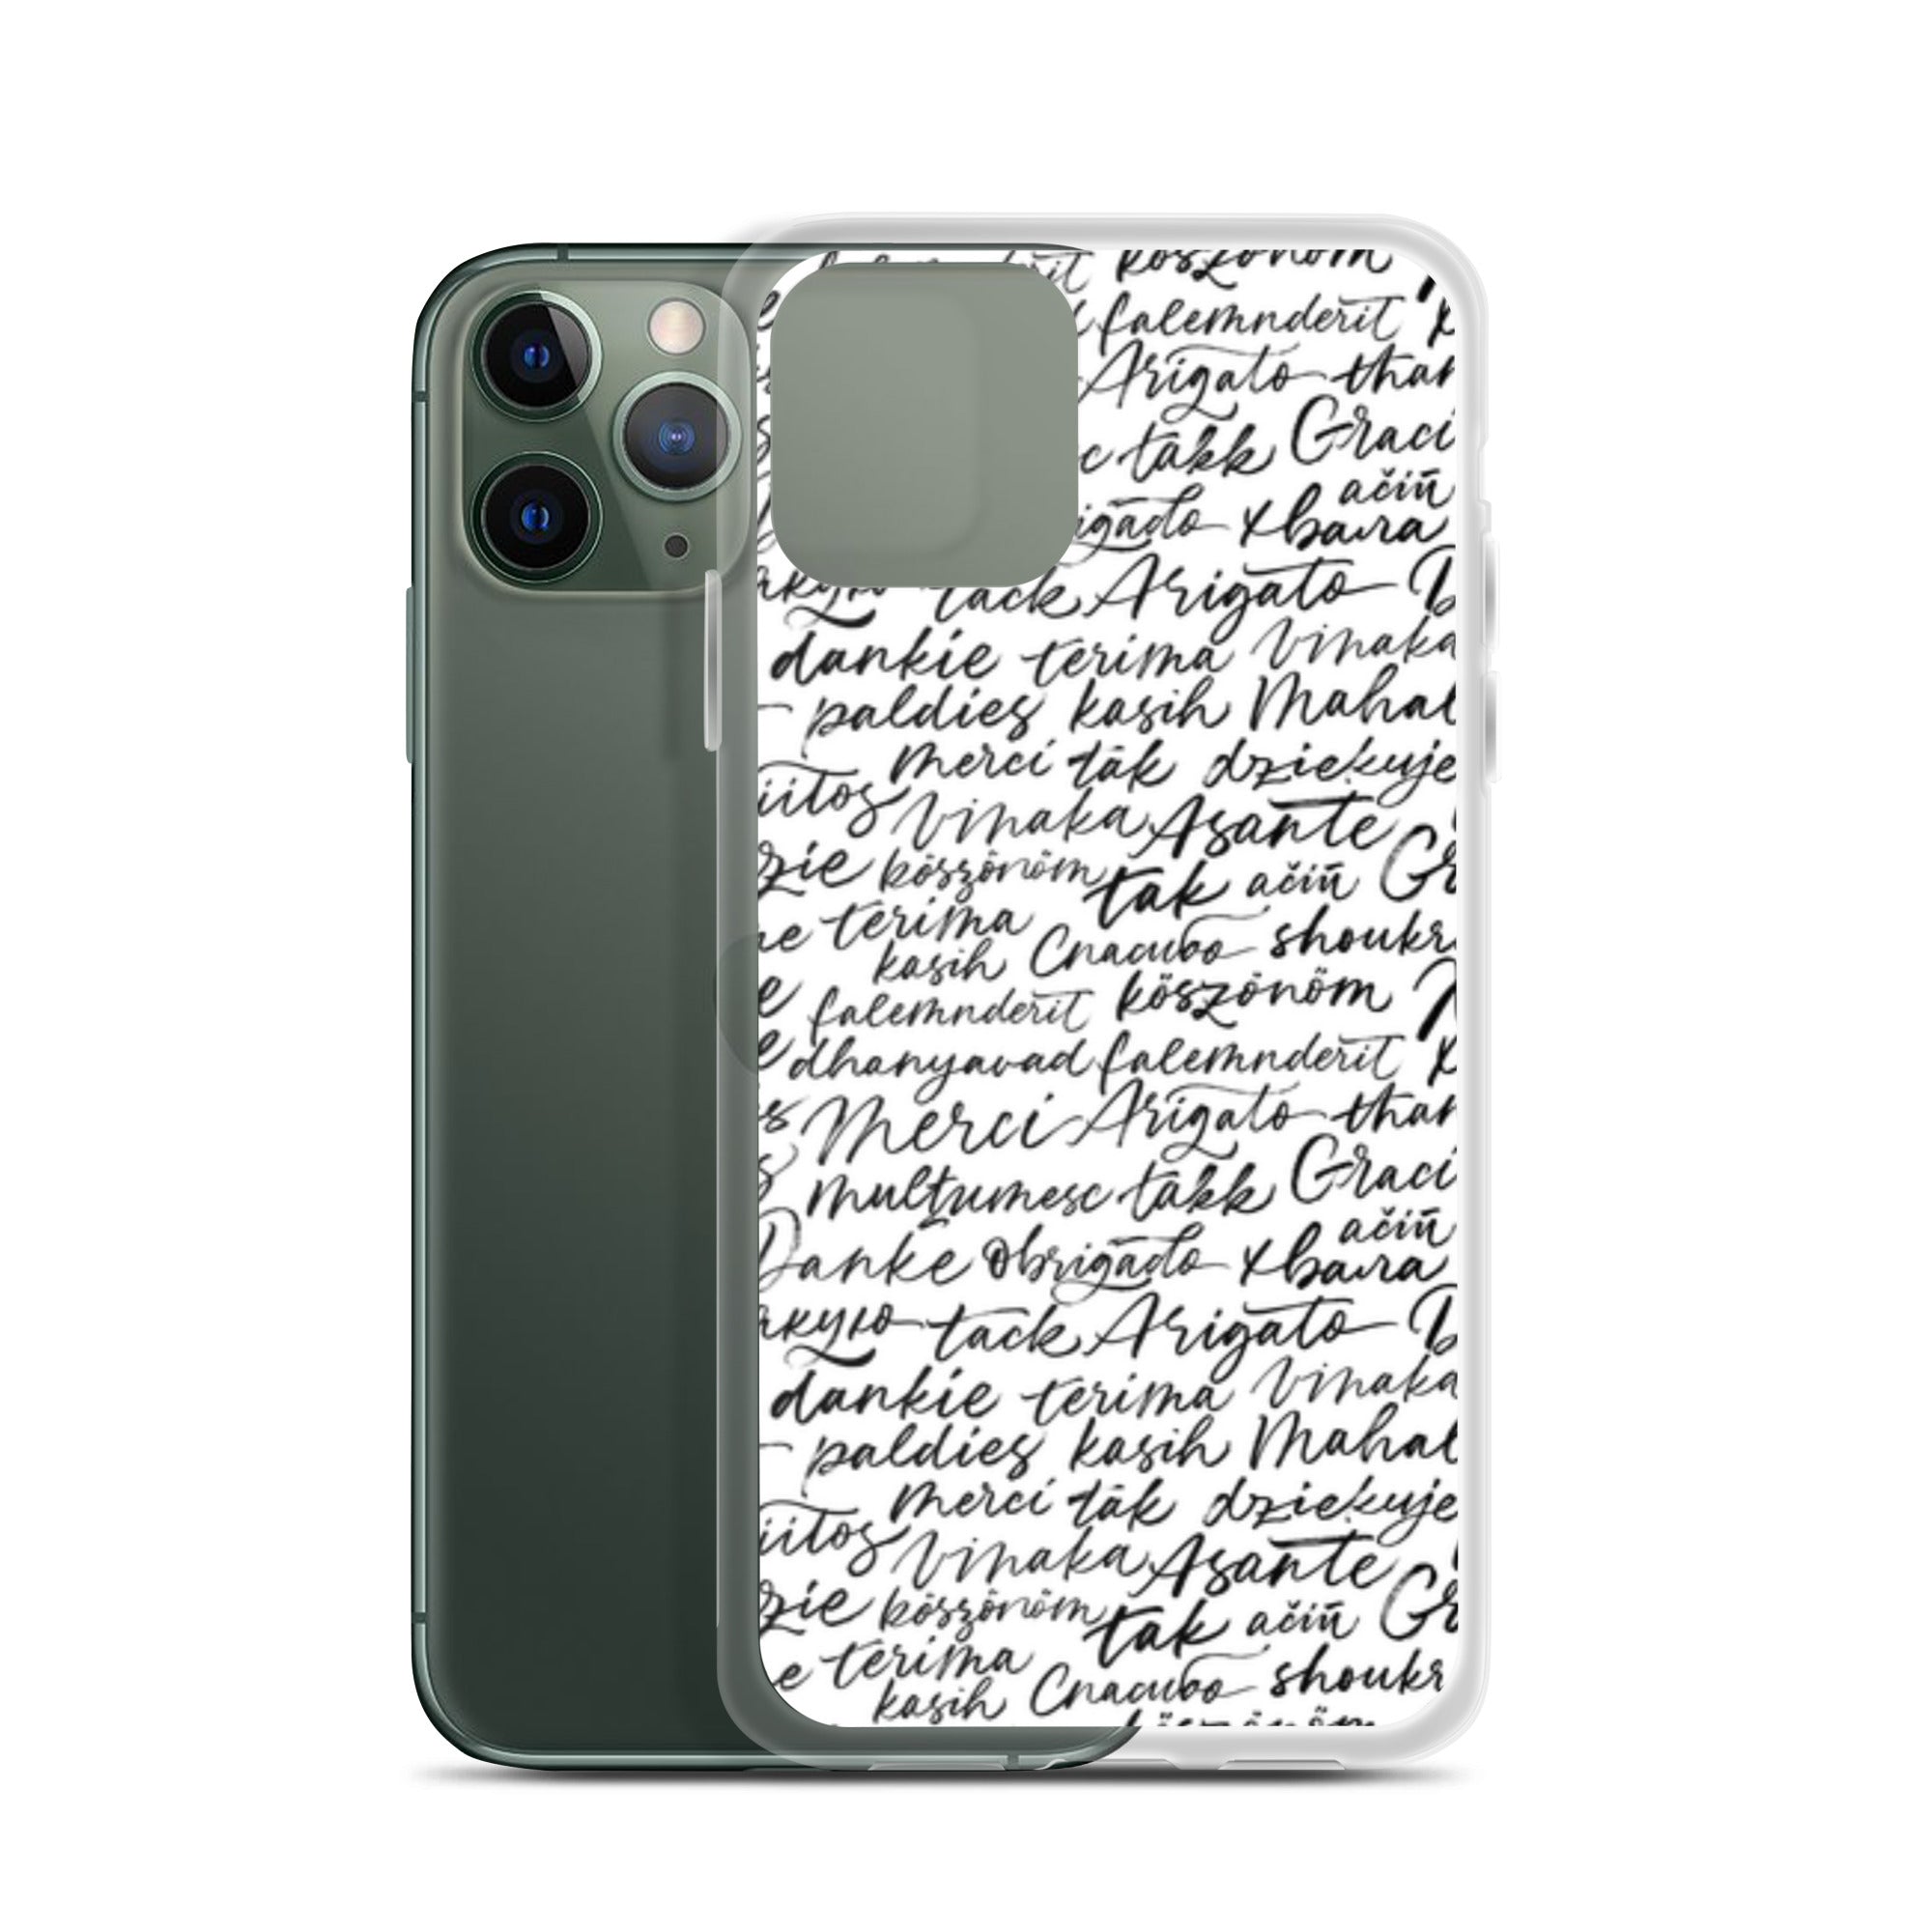 köszönöm
falemnderit
Arigato than
takk Graci
ačiū
хвала
tack Arigato
dankie terima vinaka
paldies kasih Mahal
Merci tak dziekuje
iitos vinaka Asante
zie köszönöm tak ačiū Gr
terima
kasih Спасибо shoukr
falemnderit köszönöm
dhanyavad falemnderit
Merci Arigato than
multumesc takk Graci
ačiū
Danke Obrigado хвала
акую tack Arigato
dankie terima vinaka
paldies kasih Mahal
Merci tak dziekuje
iitos vinaka Asante
zie köszönöm tak ačiū Gr
terima
kasih Спасибо shoukr